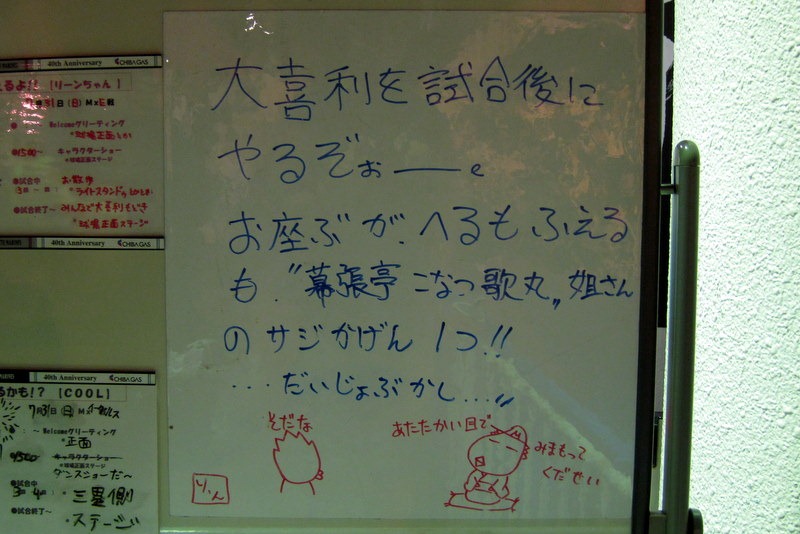 大喜利を試合後に
やるぞぉーe
お座ぶが、へるもふえる
も、〝幕張亭 こなつ歌丸〟姐さん
のサジかげん1つ!!
…だいじょぶかし…〟
そだな
りーん
あたたかい目で
みまもって
くだせい
40th Anniversary CHIBAGAS
るよ!! [リーンちゃん]
31日(日)MxE戦
Welcomeグリーティング
*球場正面しか
1500~ キャラクターショー
*球場正面ステージ
試合中 お散歩
*ライトスタンド
試合終了~ みんなで大喜利
*球場正面ステージ
40th Anniversary CHIBAGAS
40th Anniversary CHIBAGAS
るかも!? [COOL]
7月31日(日)
~ Welcomeグリーティング
*正面
キャラクターショー
*球場正面ステージ
ダンスショーだ~
試合中
・三塁側
試合終了~
・ステージ